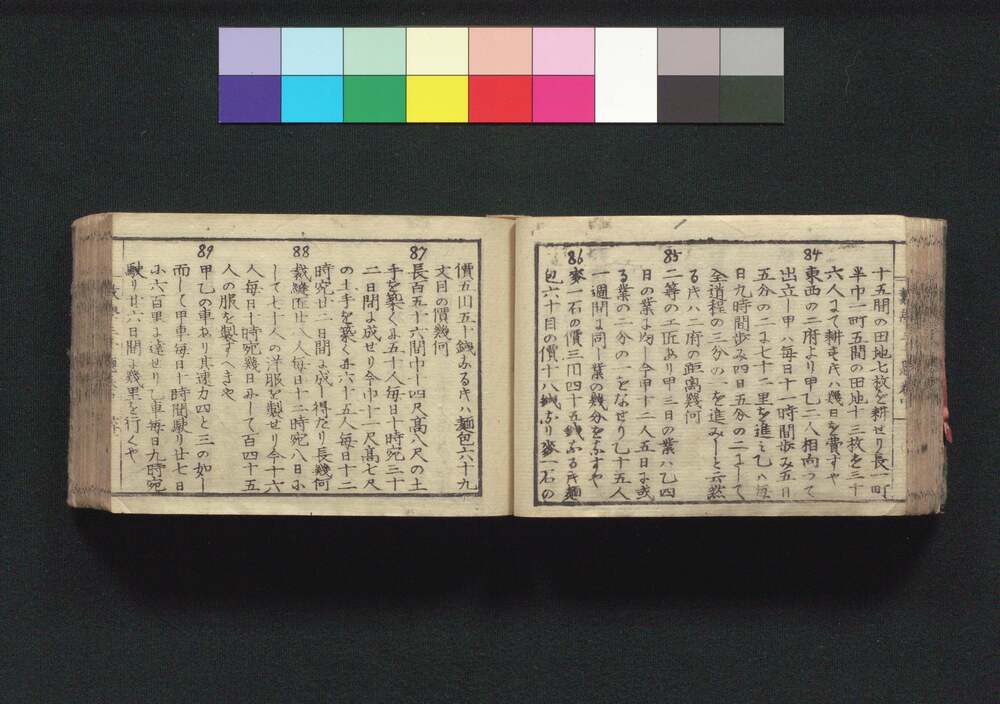 十五間の田地七枚を耕せり長一町
半巾一町五間の田地十三枚を三十
六人にて耕す时ハ幾日を費すや
84
東西の二府より甲乙二人相向つて
出立し甲ハ毎日十一時間歩み五日
五分の二に七十二里を進ミ乙ハ毎
日九時間歩み四日五分の二にして
全道程の三分の一を進みしと云然
る时ハ二府の距离幾何
85
二等の工匠あり甲三日の業ハ乙四
日の業に均し今甲十二人五日に或
る業の二分の一をなせり乙十五人
一週間に同し業の幾分をなすや
86
麥一石の價三円四十五銭なる时麺
包六十目の價十八銭なり麥一石の
價五円五十銭なる时ハ麺包六十九
文目の價幾何
87
長百五十六間巾十四尺高八尺の土
手を築くに五十人毎日十時宛三十
二日間に成せり今巾十一尺高七尺
の土手を築くに六十五人毎日十二
時宛廿二日間に成し得たり長幾何
88
裁縫匠廿八人毎日十二時宛八日に
して七十人の洋服を製せり今十六
人毎日十時宛幾日にして百四十五
人の服を製すへきや
89
甲乙の車あり其速力四と三の如し
而して甲車毎日十時間駛り廿七日
に六百里に達せり乙車毎日九時宛
駛り廿六日間に幾里を行くや